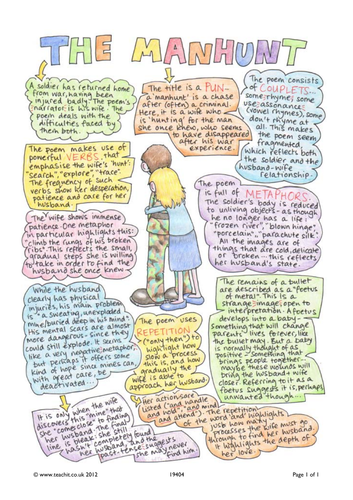 THE MANHUNT
A soldier has returned home
from war, having been
injured badly. The poem's
narrator is his wife. The
poem deals with the
difficulties faced by
them both.
The title is a PUN -
a 'manhunt' is a chase
after (often) a criminal.
Here, it is a wife who
is hunting for the man
she once knew, who seems
to have disappeared
after his war
experience.
The poem consists
of COUPLETS...
some rhyme; some
use assonance
(vowel rhymes), some
don't rhyme at
all. This makes
the poem seem
fragmented,
which reflects
both the soldier and
the husband-wife
relationship.
The poem makes use of
powerful VERBS that
emphasise the wife's 'hunt':
"search", "explore", "trace".
The frequency of such
verbs show her desperation,
patience and care for her
husband.
The poem
is full of METAPHORS.
The soldier's body is reduced
to unliving objects - as though
he no longer has a life:
"frozen river", "blown hinge",
"porcelain", "parachute silk".
All the images are of
things that are cold, delicate
or broken... this reflects
her husband's state.
The wife shows immense
patience. One metaphor
in particular highlights this:
"climb the rungs of his broken
ribs". This reflects the small,
gradual steps she is willing
to take in order to find the
husband she once knew.
While the husband
clearly has physical
injuries, his main problem
is "a sweating, unexploded
mine/buried deep in his mind".
His mental scars are almost
more dangerous since they
could still explode. It seems
like a very negative metaphor,
but perhaps it offers some
kind of hope since mines can,
with great care, be
deactivated...
The poem uses
REPETITION
("only then") to
highlight how
slow a process
this is, and how
gradually the
wife is able to
approach her husband.
The remains of a bullet
are described as a "foetus
of metal". This is a
strange image, open to
interpretation. A foetus
develops into a baby -
something that will change
parents' lives forever, like
the bullet may. But a baby
is normally thought of as
positive - something that
brings people together -
maybe these wounds will
bring the husband + wife
closer. Referring to it as a
foetus suggests it is perhaps
unwanted though...
It is only when the wife
discovers this "mine" that
she "come[s] close" to finding
her husband. The final
line is bleak: she still
hasn't completely found
her husband, and the
past-tense suggests
she may never
find him.
Her actions are
listed: "and handle
and hold", "and mind
and attend".
The repetition
of the word 'and' highlights
just how many
processes the wife must go
through to find her husband.
It highlights the depth of
her love.
© www.teachit.co.uk 2012
19404
Page 1 of 1